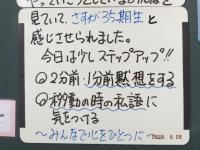 見ていて、さすが35期生と
感じさせられました。
今日は少しステップアップ!!
②2分前・1分前黙想をする
④移動の時の私語に
気をつける
〜みんなで心をひとつに〜
2020 8 26